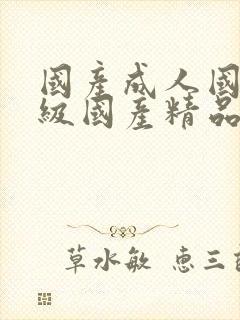 國産成人國
級國産精品
草水敏 恵三